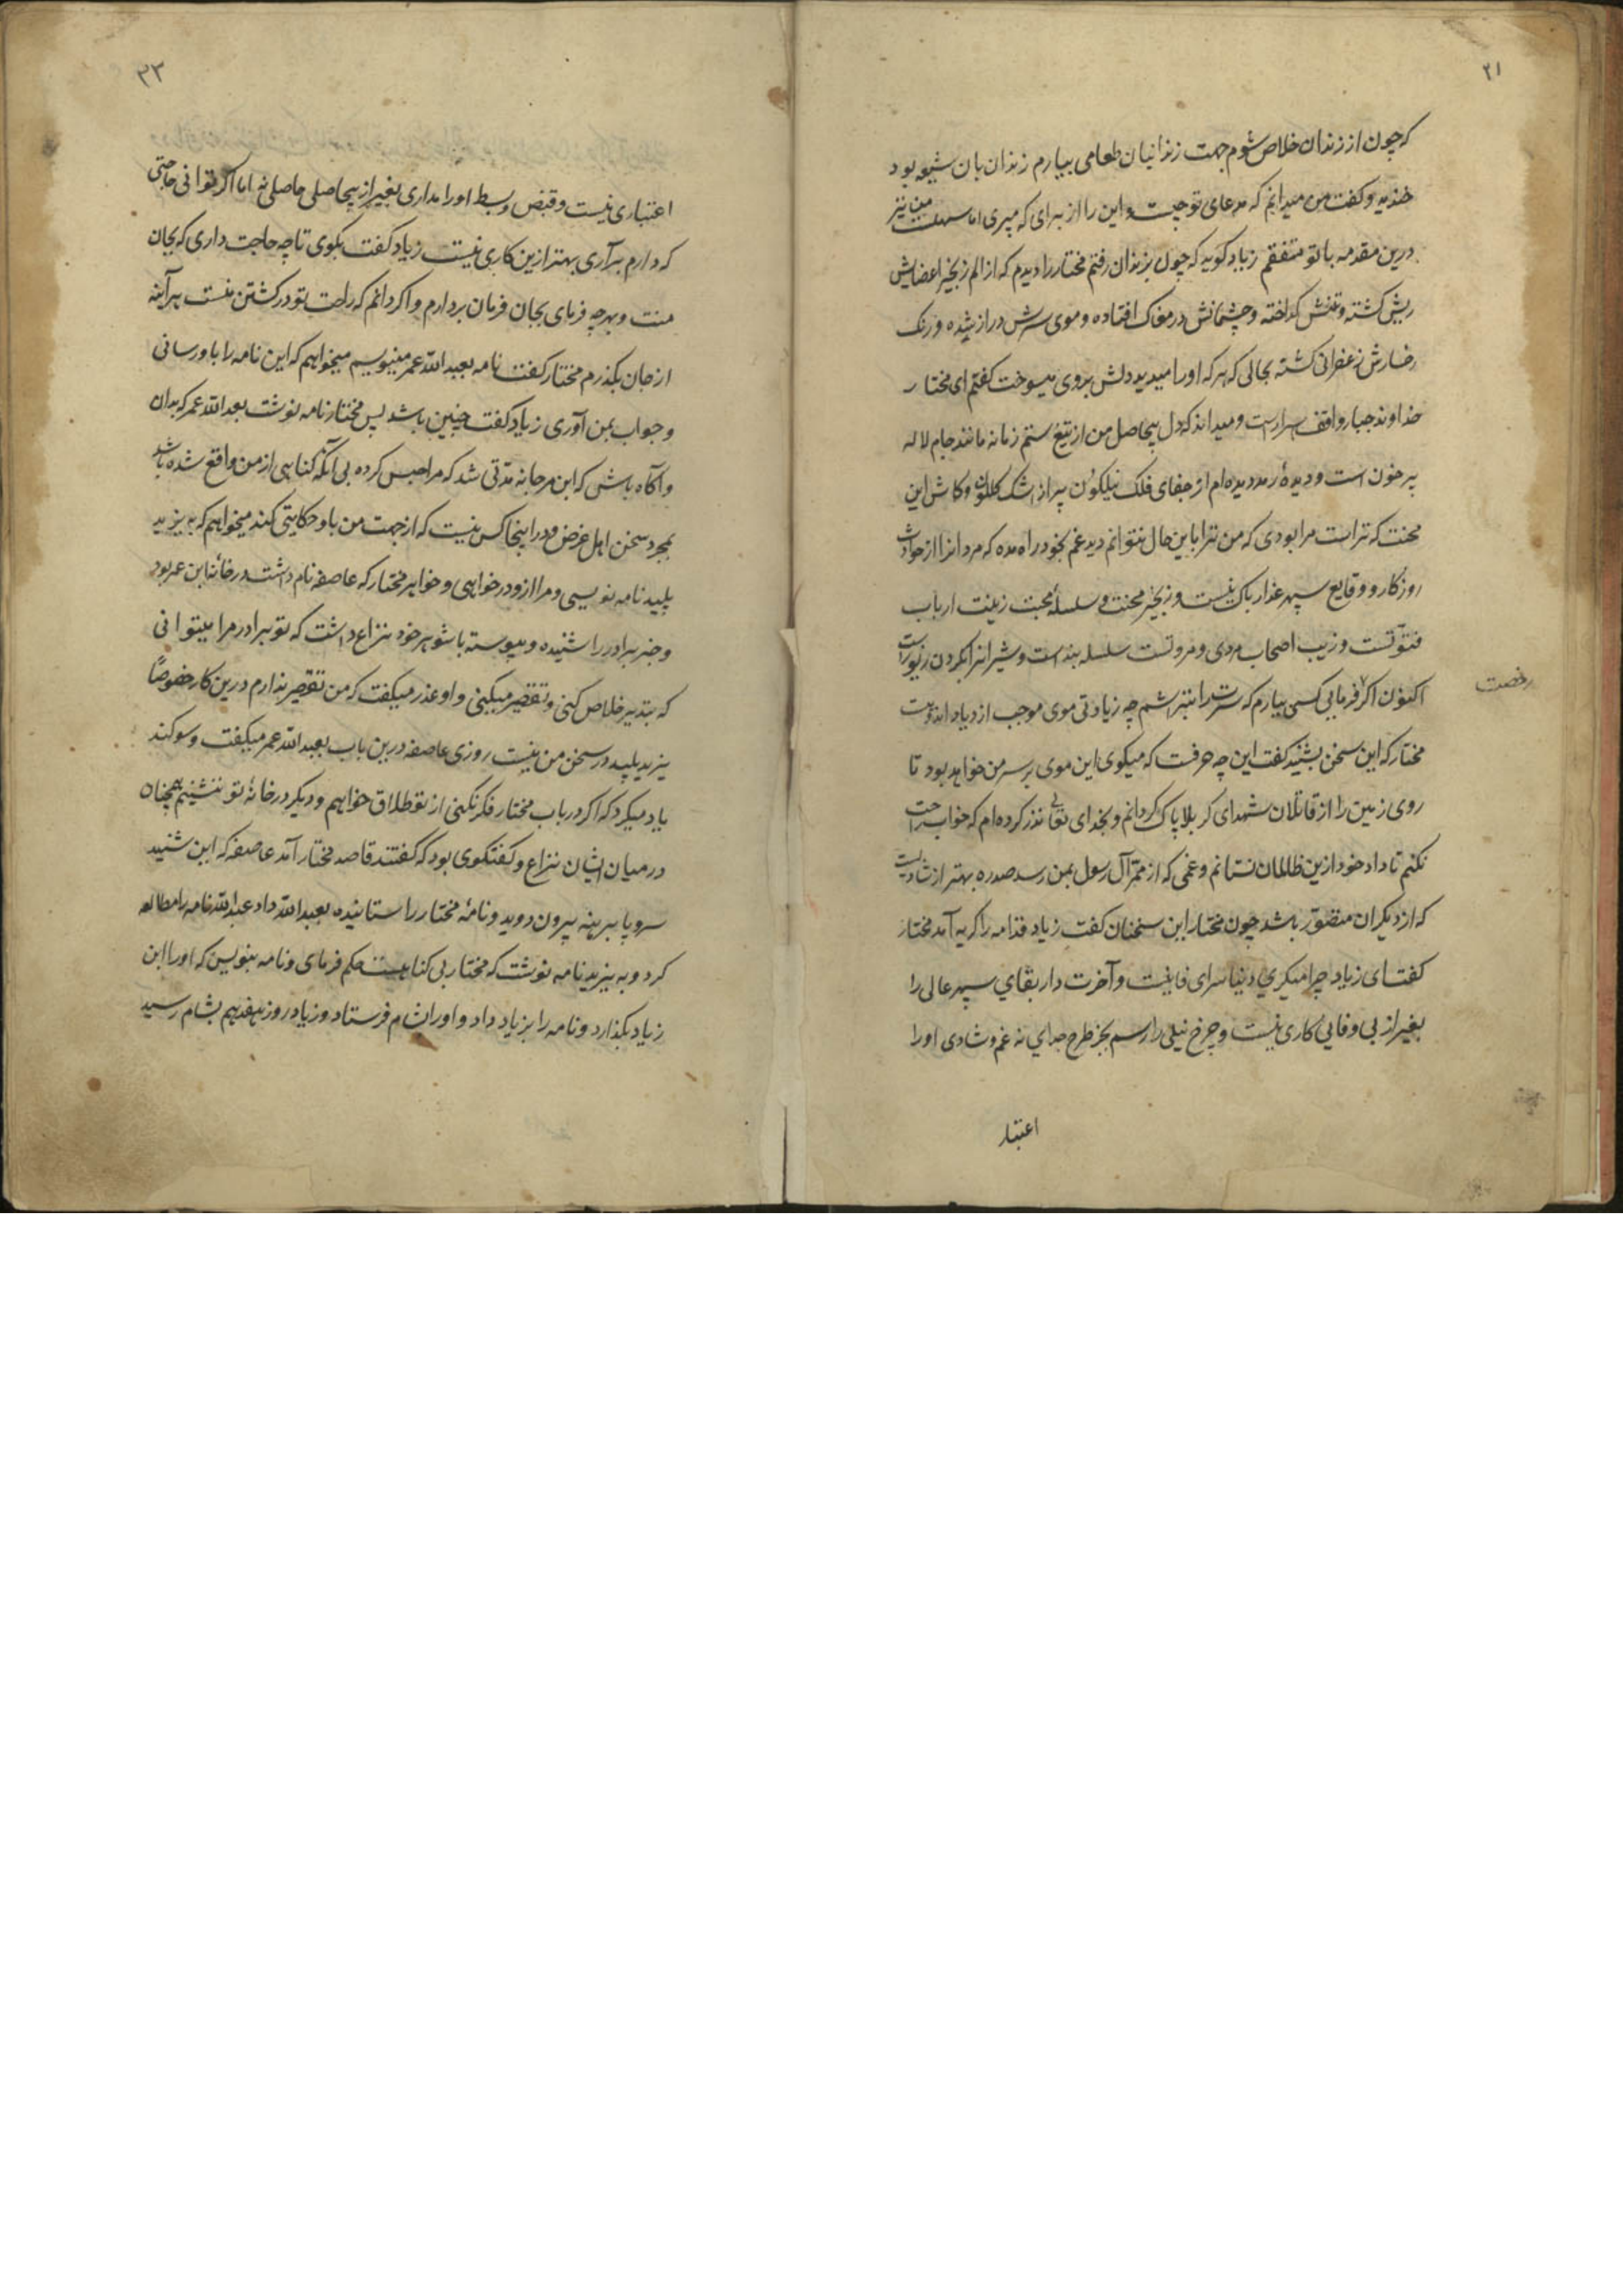 ۲۱
که چون از زندان خلاص شوم جهت زندانیان طعامی بیارم زندان بان شیعه بود
خندید و کفت من میدانم که مدعای تو چیست و این را از برای که میبری اما سهلست من نیز
درین مقدمه با تو متفقم زیاد کوید که چون بزندان رفتم مختار را دیدم که از الم زنجیر اعضایش
ریش کشته و تنش کداخته و چشمانش در مغاک افتاده و موی سرش دراز شده و رنک
رخسارش زعفرانی کشته بحالی که هر که اورا میدید دلش بروی میسوخت کفتم ای مختار
خداوند جبار واقف اسرارست و میداند که دل بیحاصل من از تیغ ستم زمانه مانند جام لاله
پر خون است و دیدهٔ رمد دیده ام از جفای فلک نیلکون پر از اشک کلکون و کاش این
محنت که تراست مرا بودی که من ترا باین حال نتوانم دید غم بخود راه مده که مردانرا از حوادث
روزکار و وقایع سپهر غدار باک نیست و زنجیر محنت و سلسلهٔ محبت زینت ارباب
فتوتست و زیب اصحاب مردی و مروتست سلسله بند است و شیرانرا بکردن زیورست
اکنون اکر فرمایی کسی بیارم که سرت را بتراشم چه زیادتی موی موجب ازدیاد اندوهست
رخصت
مختار که این سخن بشنید کفت این چه حرفت که میکوی این موی بر سر من خواهد بود تا
روی زمین را از قاتلان شهدای کربلا پاک کردانم و بخدای تعالی نذر کرده ام که خواب راحت
نکنم تا داد خود ازین ظالمان نستانم و غمی که از ممر آل رسول بمن رسد صدره بهتر از شادیست
که از دیکران متصور باشد چون مختار این سخنان کفت زیاد قدامه را کریه آمد مختار
کفت ای زیاد چرا میکریی دنیا سرای فانیست و آخرت دار بقای سپهر عالی را
بغیر از بی وفایی کاری نیست و چرخ نیلی را رسم بجز طرح جدای نه غم و شادی او را
اعتبار
۳۳
اعتباری نیست و قبض و بسط اورا مداری بغیر از بیحاصلی حاصلی نه اما اکر توانی حاجتی
که دارم برآری بهتر ازین کاری نیست زیاد کفت بکوی تا چه حاجت داری که بجان
منت و بهرچه فرمای بجان فرمان بردارم و اکر دانم که راحت تو در کشتن منست هر آینه
از جان بکذرم مختار کفت نامه بعبدالله عمر مینویسم میخواهم که این نامه را باو رسانی
و جواب بمن آوری زیاد کفت چنین باشد پس مختار نامه نوشت بعبدالله عمر که بدان
و آکاه باش که ابن مرجانه مدتی شد که مرا حبس کرده بی آنکه کناهی از من واقع شده باشد
بمجرد سخن اهل غرض و در اینجا کس نیست که از جهت من باو حکایتی کند میخواهم که به یزید
پلید نامه نویسی و مرا ازو درخواهی و خواهر مختار که عاصفه نام داشت در خانهٔ ابن عمر بود
و خبر برادر را شنیده و پیوسته با شوهر خود نزاع داشت که تو برادر مرا میتوانی
که بتدبیر خلاص کنی و تقصیر میکنی و او عذر میکفت که من تقصیر ندارم درین کار خصوصاً
یزید پلید در سخن من نیست روزی عاصفه درین باب بعبدالله عمر میکفت و سوکند
یاد میکرد که اکر در باب مختار فکر نکنی از تو طلاق خواهم و دیکر در خانهٔ تو ننشینم همچنان
در میان ایشان نزاع و کفتکوی بود که کفتند قاصد مختار آمد عاصفه که این شنید
سر و پا برهنه بیرون دوید و نامهٔ مختار را ستانیده بعبدالله داد عبدالله نامه را مطالعه
کرد و به یزید نامه نوشت که مختار بی کناهست حکم فرمای و نامه بنویس که اورا ابن
زیاد بکذارد و نامه را بزیاد داد و اورا بشام فرستاد و زیاد روز هفدهم بشام رسید